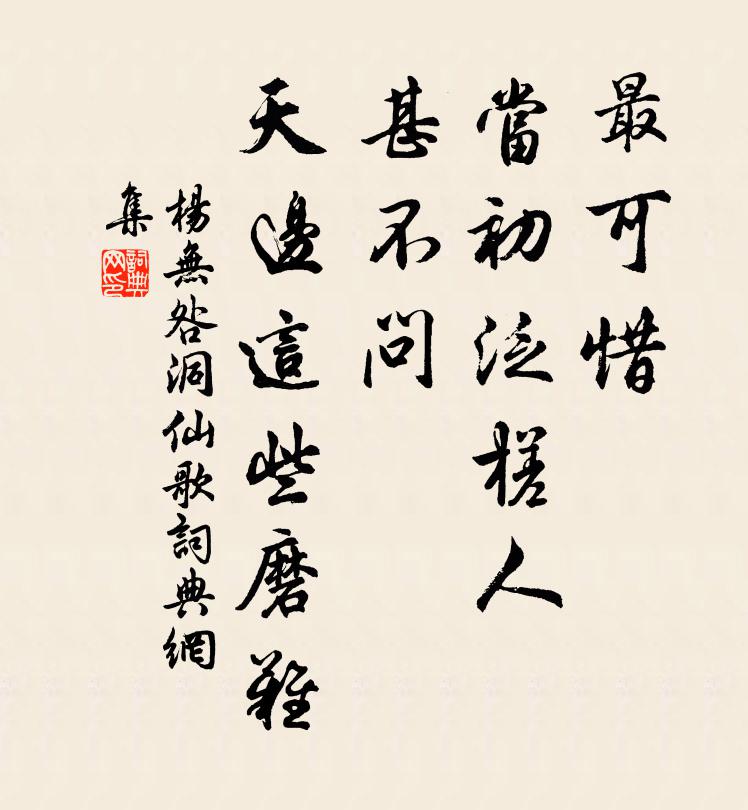 最可惜
當初泛槎人
甚不問
天邊這些磨難
楊無咎洞仙歌詞典網
集
詞典
网印